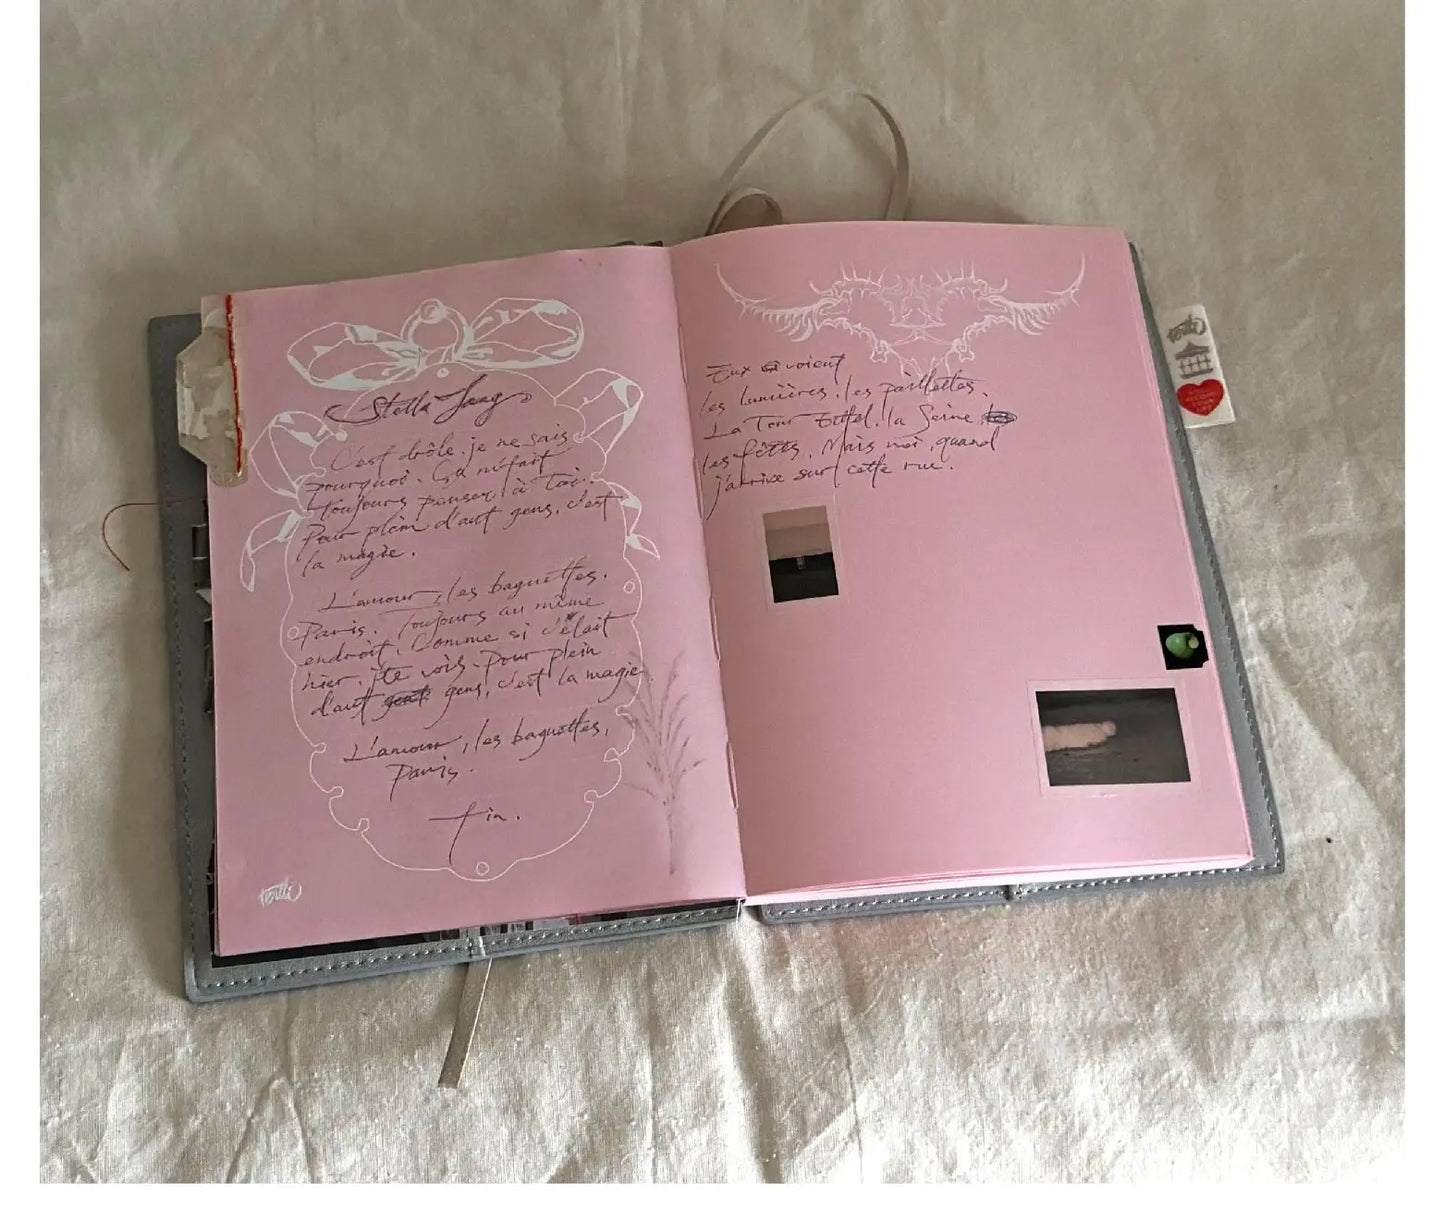 Stella Jang
C'est drôle. je ne sais
pourquoi. Ça m'fait
toujours penser à toi.
Pour plein d'aut gens, c'est
la magie.
L'amour, les baguettes.
Paris. Toujours au même
endroit. Comme si c'était
hier. j'te vois. pour plein
d'aut gens, c'est la magie
L'amour, les baguettes,
Paris.
fin.
Eux voient
les lumières. les paillettes.
La Tour Eiffel. la Seine
les fêtes. Mais moi, quand
j'arrive sur cette rue.